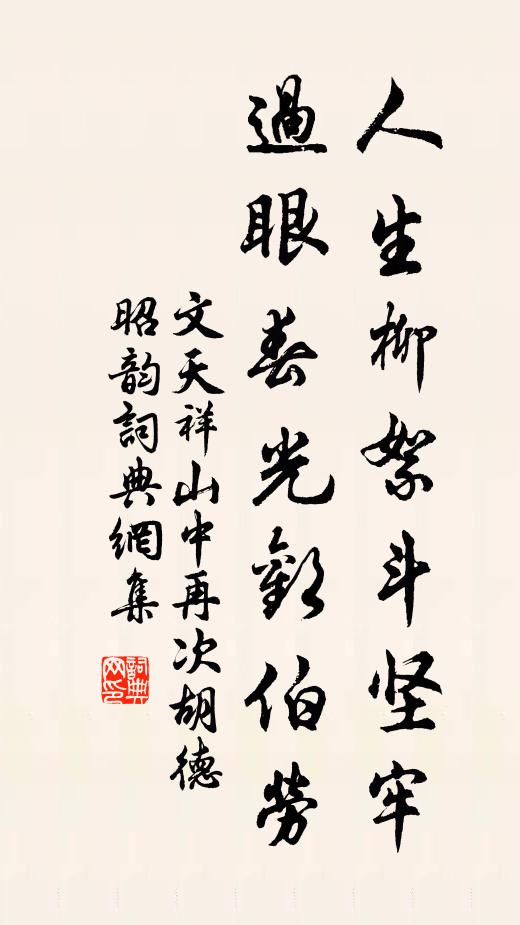 人生柳絮斗坚牢
過眼春光歡伯勞
文天祥山中再次胡德
昭韵詞典網集
詞典网印